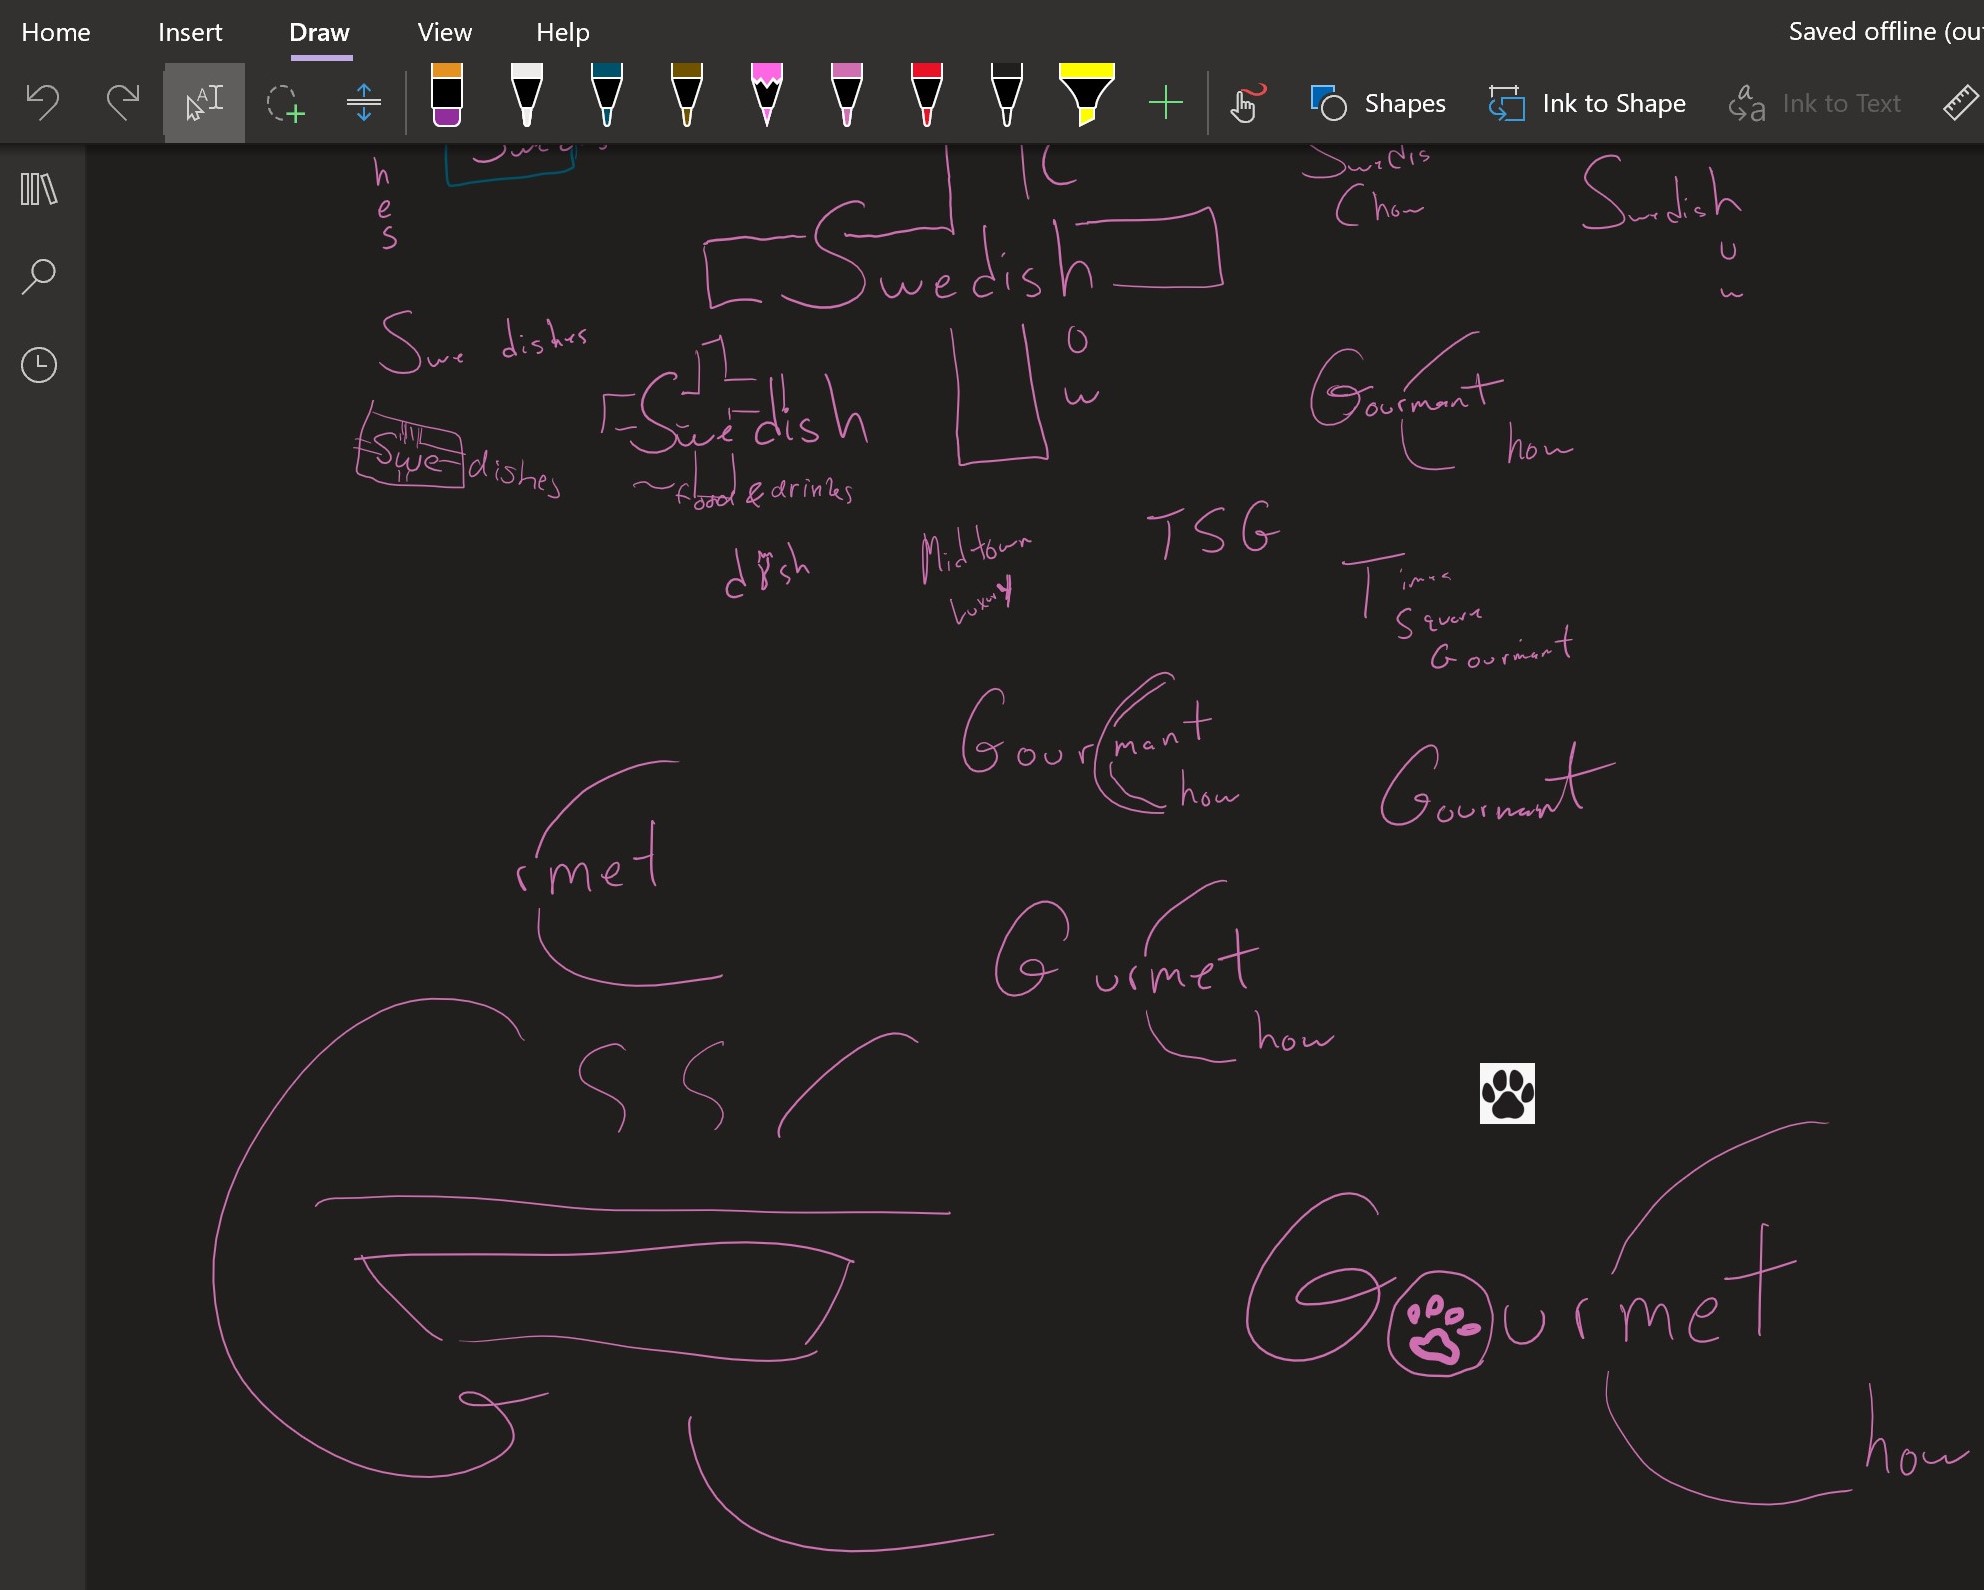 Home Insert Draw View Help Saved offline (ou
Shapes Ink to Shape Ink to Text
h
e
s
Swedis
Chow
Swedish
u
w
Swedish
o
w
Swe dishes
Swedish
food & drinks
Swe dishes
Gourmant
how
TSG
dish
Midtown
Luxury
Times
Square
Gourmant
Gourmant
how
Gourmant
rmet
G urmet
how
S S
G urmet
how